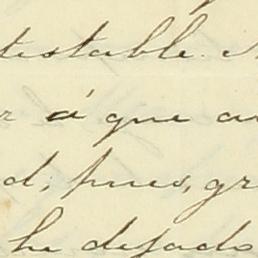 testable.
r á que au
d, pues, gr
he dejado